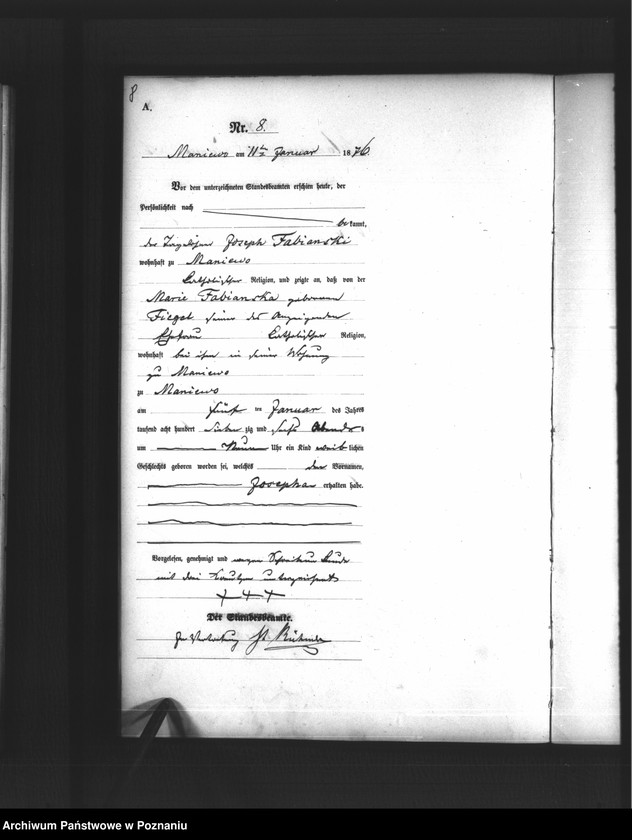 8
A.
Nr. 8.
Maniewo am 11ten Januar 1876.
Vor dem unterzeichneten Standesbeamten erschien heute, der
Persönlichkeit nach
bekannt,
der Joseph Fabianski
wohnhaft zu Maniewo
katholischer Religion, und zeigte an, daß von der
Marie Fabianska geborenen
Fiegel seiner des Anzeigenden
Ehefrau katholischer Religion,
wohnhaft bei ihm in seiner Wohnung
zu Maniewo
zu Maniewo
am fünf ten Januar des Jahres
tausend acht hundert sieben zig und sechs Abends s
um Neun Uhr ein Kind weib lichen
Geschlechts geboren worden sei, welches den Vornamen,
Josepha erhalten habe.
Vorgelesen, genehmigt und wegen Schreibens
mit drei Kreuzen unterzeichnet
+++
Der Standesbeamte.
In Vertretung
Archiwum Państwowe w Poznaniu